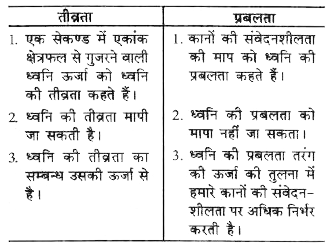 तीव्रता
प्रबलता
1. एक सेकण्ड में एकांक
क्षेत्रफल से गुजरने वाली
ध्वनि ऊर्जा को ध्वनि
की तीव्रता कहते हैं।
2. ध्वनि की तीव्रता मापी
जा सकती है।
3. ध्वनि की तीव्रता का
सम्बन्ध उसकी ऊर्जा से
है।
1. कानों की संवेदनशीलता
की माप को ध्वनि की
प्रबलता कहते हैं।
2. ध्वनि की प्रबलता को
मापा नहीं जा सकता।
3. ध्वनि की प्रबलता तरंग
की ऊर्जा की तुलना में
हमारे कानों की संवेदन-
शीलता पर अधिक निर्भर
करती है।